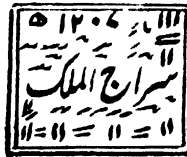 ۱۲۰۶
سراج الملک